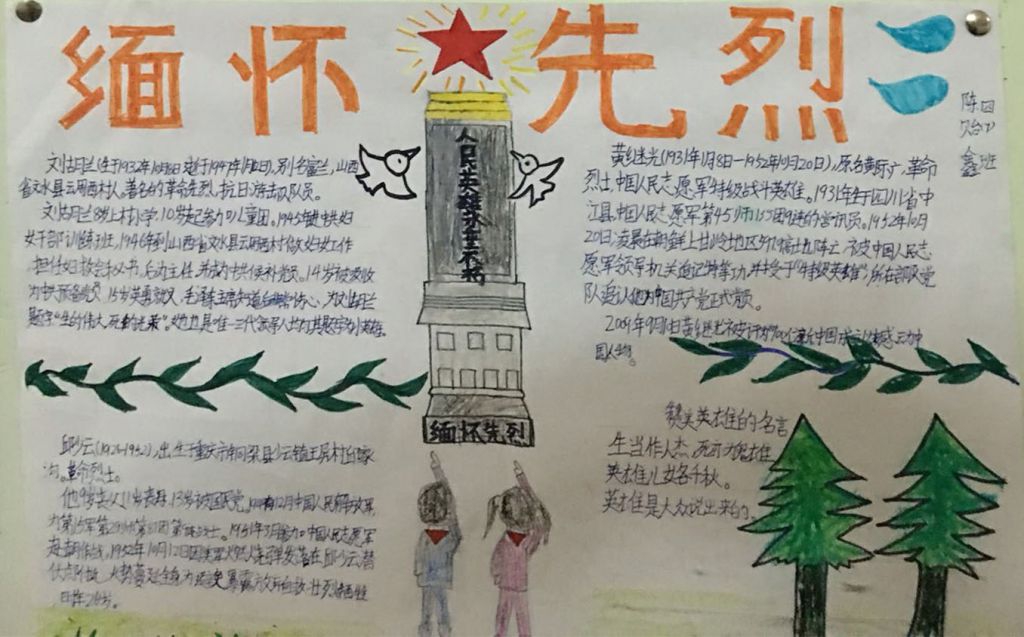 缅怀先烈
陈贻鑫
四(1)班
人民英雄永垂不朽
刘胡兰(生于1932年10月8日逝于1947年1月12日),别名富兰,山西
省文水县云周西村人。著名的革命先烈,抗日游击队队员。
刘胡兰8岁上村小学,10岁起参加儿童团。1945年 中共妇
女干部训练班,1946年到山西省文水县云周西村做妇女工作
担任妇救会秘书,后为主任,并成为中共候补党员。14岁被吸收
为中共预备党员,15岁英勇就义,毛泽东主席知道后 伤心,为刘胡兰
题字“生的伟大,死的光荣”。她也是唯一三代领导人均为其题字的英雄。
黄继光(1931年1月8日—1952年10月20日),原名黄际广,革命
烈士,中国人民志愿军特级战斗英雄。1931年生于四川省中
江县,中国人民志愿军第45师135团 的通讯员。1952年10月
20日凌晨在朝鲜上甘岭地区597.9高地 阵亡,被中国人民志
愿军领导机关追记特等功,并授于“特级英雄”,所在部队党
队追认他为中国共产党正式党员。
2009年9月 黄继光被评为100位新中国成立以来感动中
国人物。
邱少云(1926-1952),出生于重庆市铜梁县少云镇玉屏村邱家
沟。革命烈士。
他9岁丧父11岁丧母,13岁被国民党 12月中国人民解放军
为第 军第29师第87团第 战士。1951年3月参加中国人民志愿军
赴朝作战,1952年10月12日因美军 燃烧弹发落在邱少云潜
伏点附近,火势蔓延全身,为避免暴露 壮烈牺牲
时年26岁。
赞美英雄的名言
生当作人杰,死亦为鬼雄
英雄儿女各千秋。
英雄是大众说出来的。
缅怀先烈